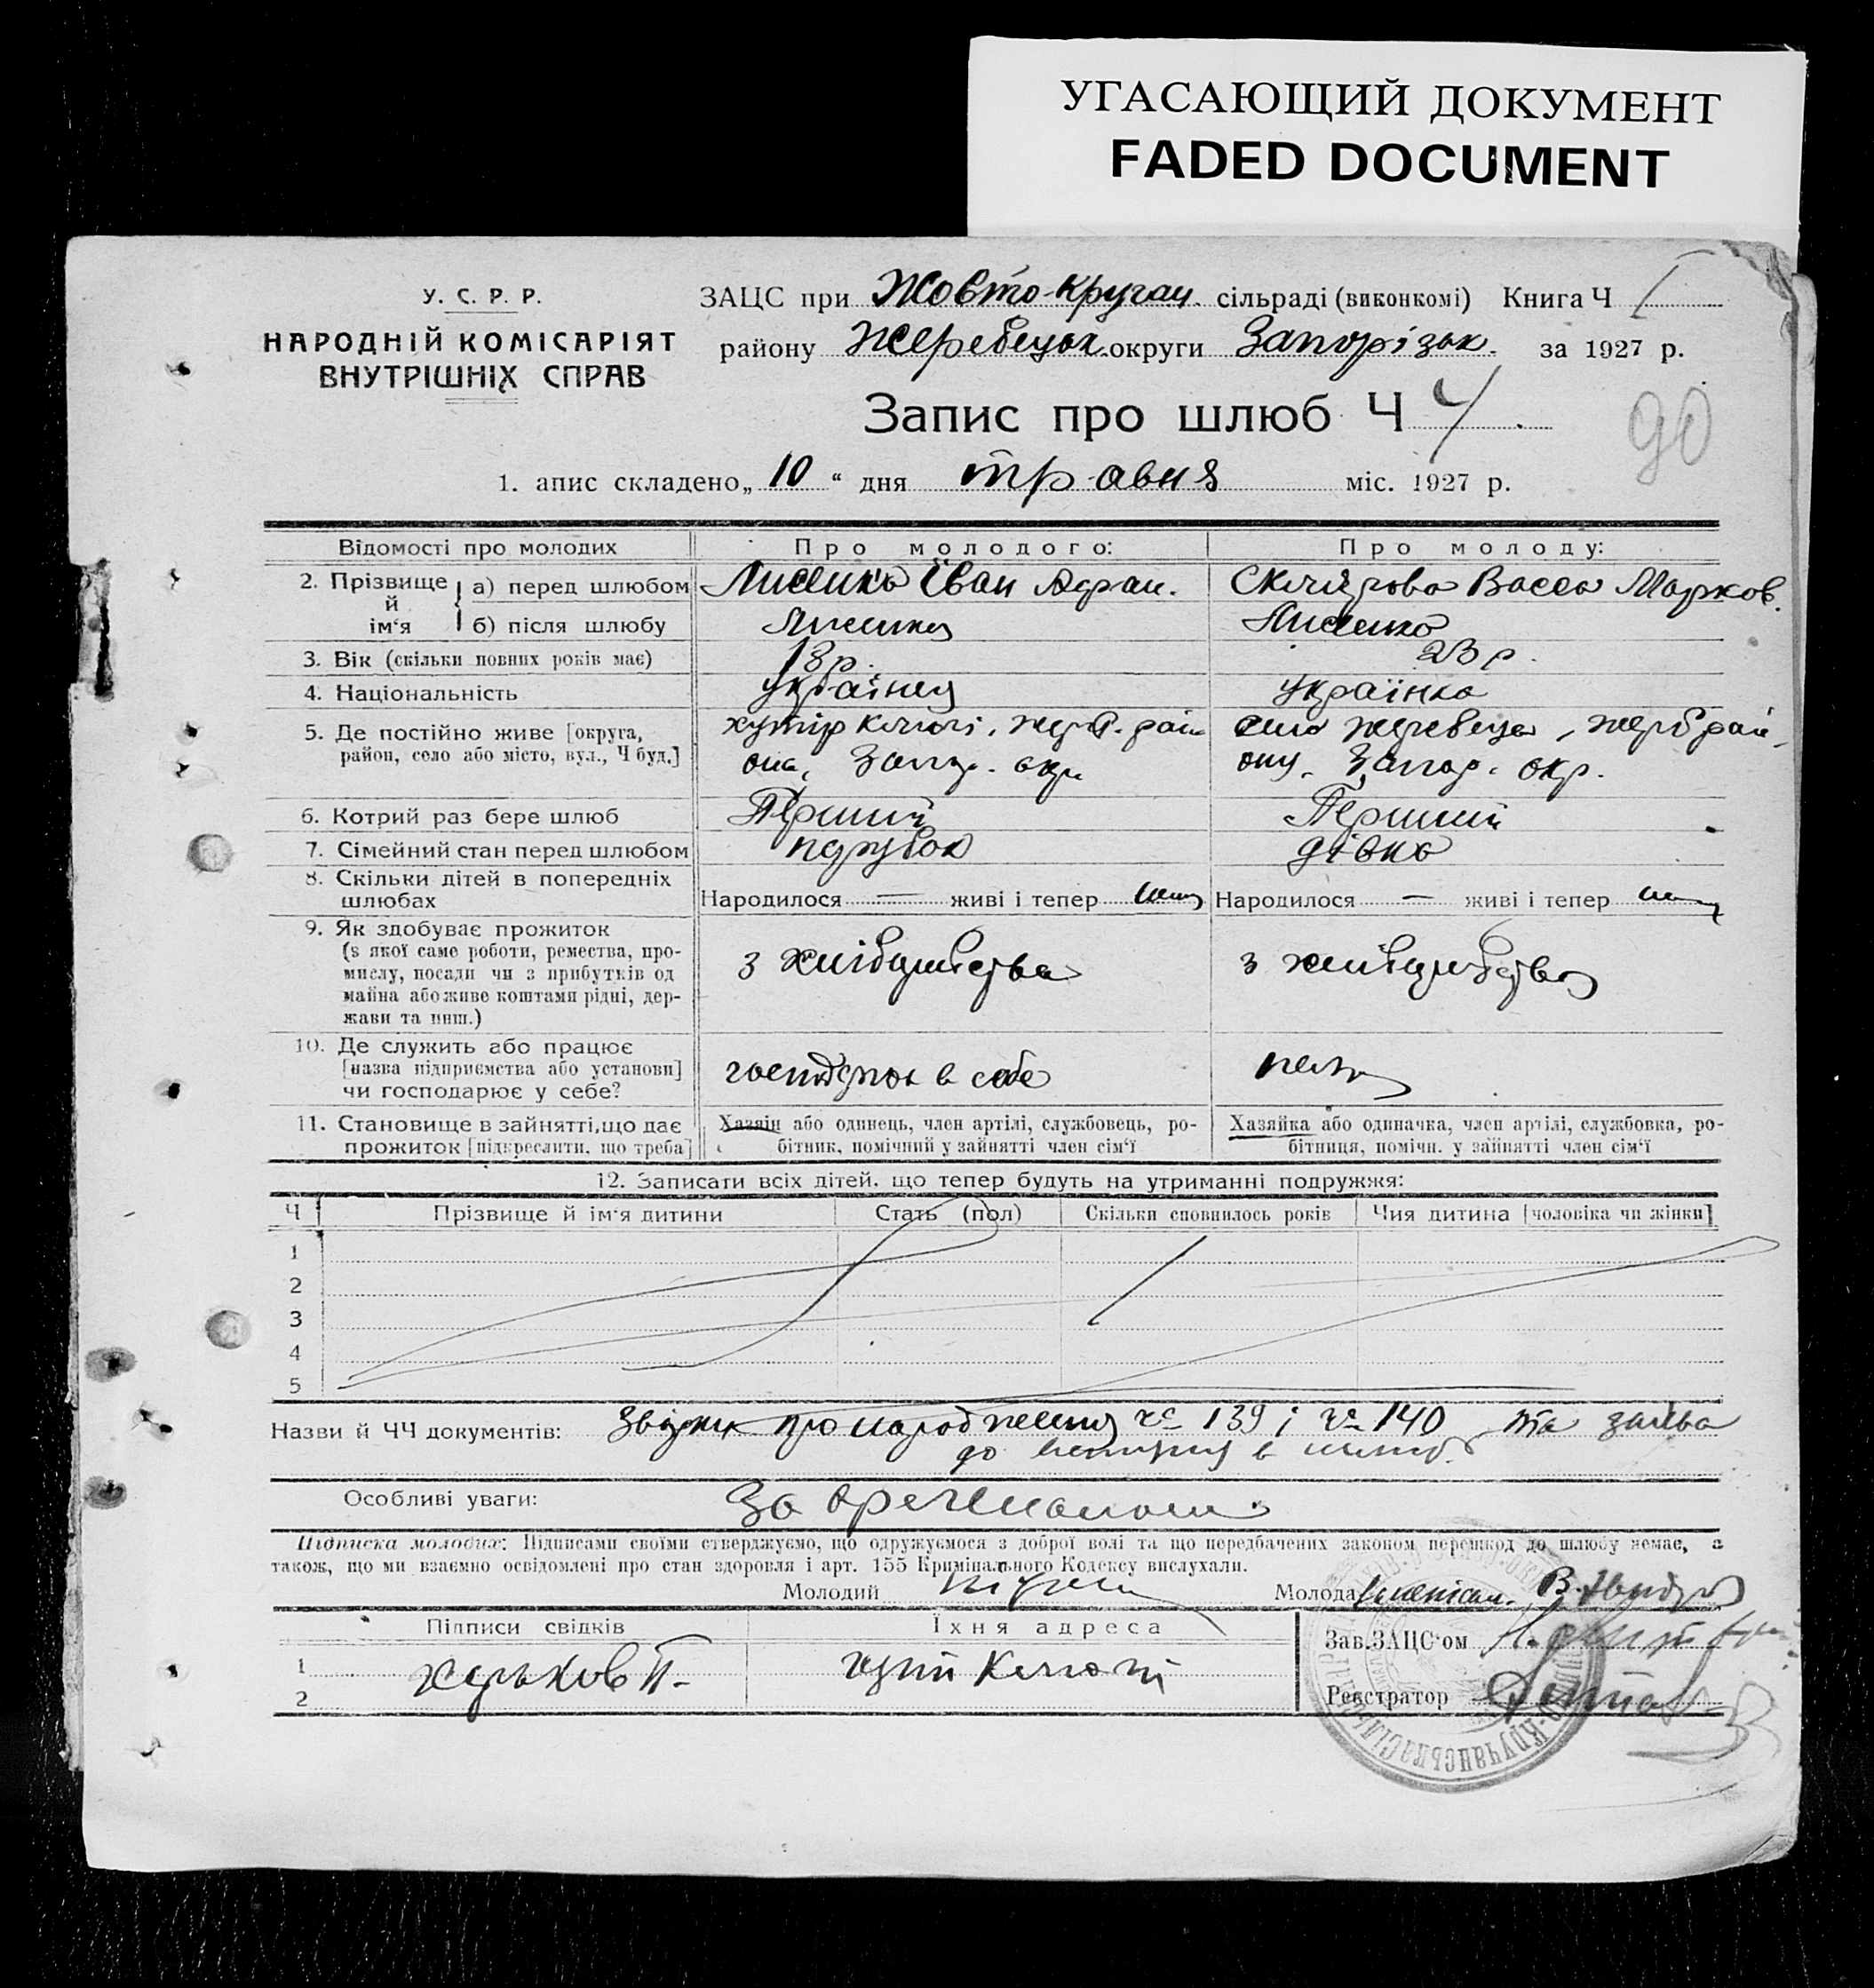 УГАСАЮЩИЙ ДОКУМЕНТ
FADED DOCUMENT
У. С. Р. Р.
НАРОДНІЙ КОМІСАРІЯТ
ВНУТРІШНІХ СПРАВ
ЗАЦС при Жовто-Кручан. сільраді (виконкомі) Книга Ч
району Жеребецьк. округи Запорізьк. за 1927 р.
Запис про шлюб Ч 4
90
1. апис складено „10“ дня травня міс. 1927 р.
Відомості про молодих
Про молодого:
Про молоду:
2. Прізвище й ім‘я
а) перед шлюбом
Лисенко Іван
Склярова Васса Марков.
б) після шлюбу
Лисенко
Лисенко
3. Вік (скільки повних років має)
18 р.
23 р.
4. Національність
Українец
Українка
5. Де постійно живе [округа,
район, село або місто, вул., Ч буд.]
хутір Ключі, Жереб. рай
она, Запор. окр.
село Жеребець, Жереб рай
ону, Запор. окр.
6. Котрий раз бере шлюб
Перший
Перший
7. Сімейний стан перед шлюбом
парубок
дівка
8. Скільки дітей в попередніх
шлюбах
Народилося — живі і тепер
Народилося — живі і тепер
9. Як здобуває прожиток
(з якої саме роботи, ремества, про-
мислу, посади чи з прибутків од
майна або живе коштами рідні, дер-
жави та инш.)
з хліборобства
з хліборобства
10. Де служить або працює
[назва підприємства або установи]
чи господарює у себе?
в себе
11. Становище в зайнятті, що дає
прожиток [підкреслити, що треба]
Хазяїн або одинець, член артілі, службовець, ро-
бітник, помічний у зайнятті член сім‘ї
Хазяйка або одиначка, член артілі, службовка, ро-
бітниця, помічн. у зайнятті член сім‘ї
12. Записати всіх дітей, що тепер будуть на утриманні подружжя:
Ч
Прізвище й ім‘я дитини
Стать (пол)
Скільки сповнилось років
Чия дитина [чоловіка чи жінки]
1
2
3
4
5
Назви й ЧЧ документів: про народження 139 і 140 та заява
до в шлюб.
Особливі уваги:
Підписка молодих: Підписами своїми стверджуємо, що одружуємося з доброї волі та що передбачених законом перешкод до шлюбу немає, а
також, що ми взаємно освідомлені про стан здоровля і арт. 155 Кримінального Кодексу вислухали.
Молодий
Молода
Підписи свідків
Їхня адреса
1
Харьков П.
2
Зав. ЗАЦС‘ом
Реєстратор